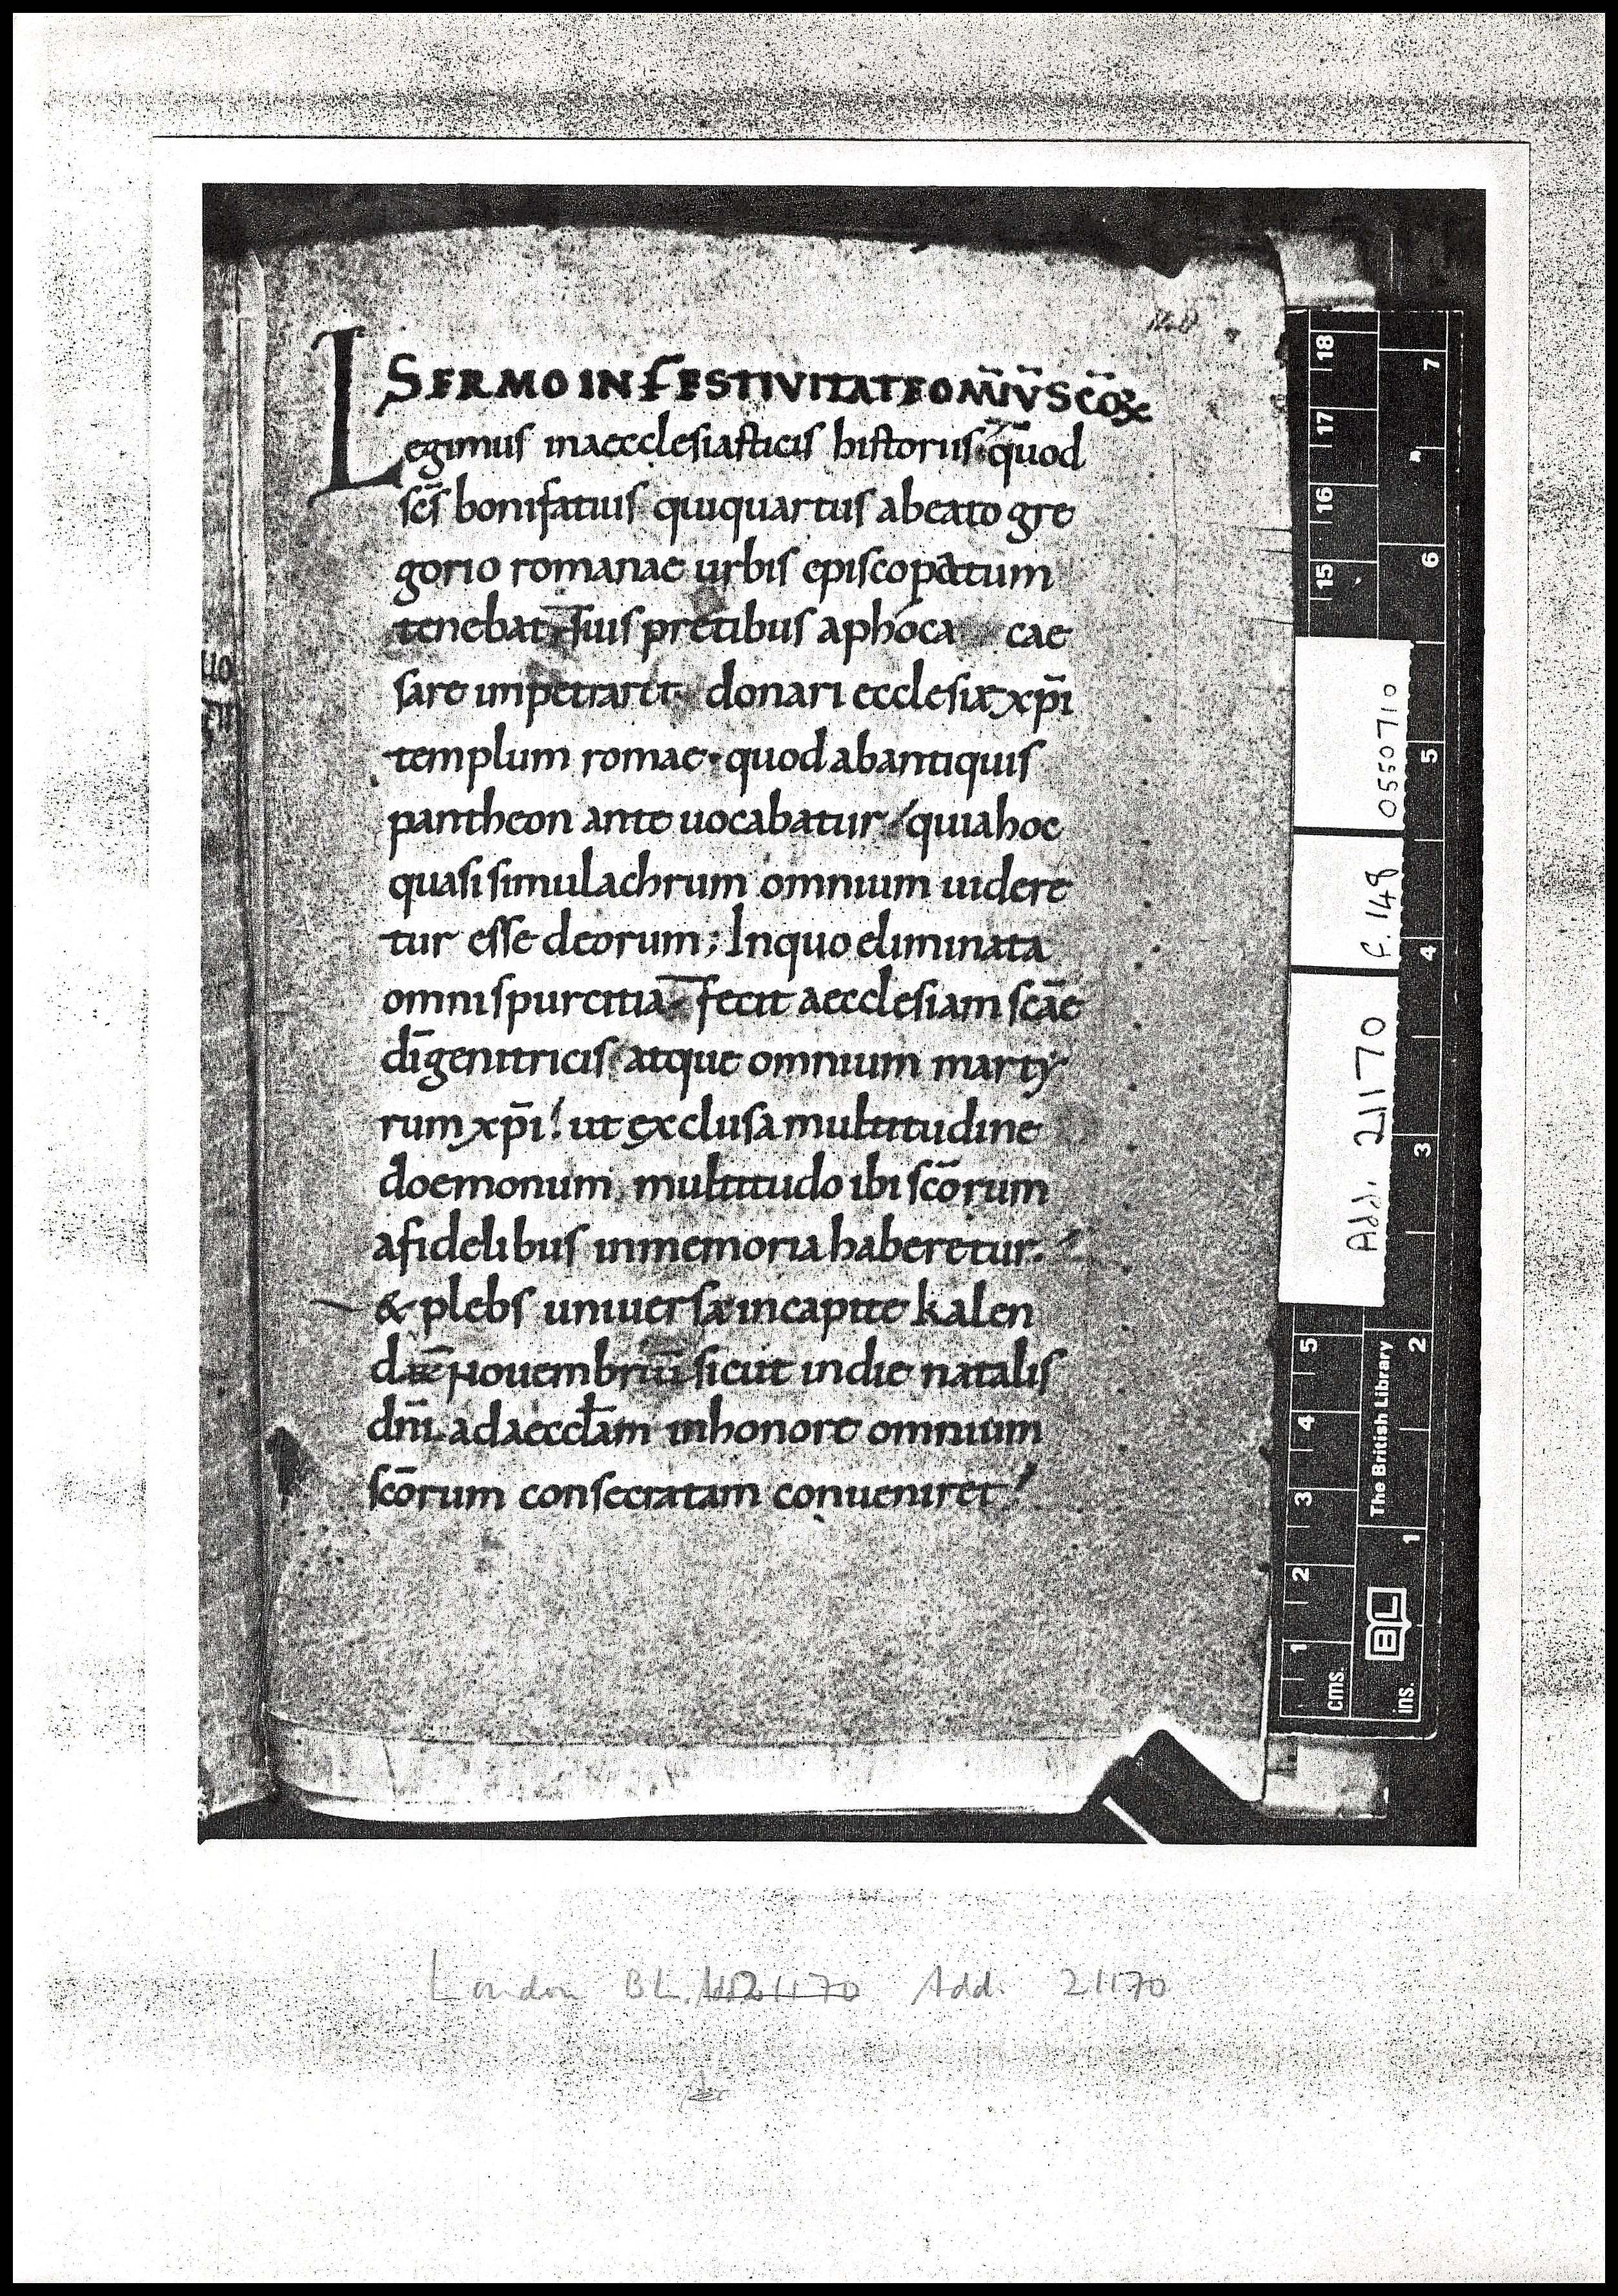 SERMO IN FESTIVITATE OM̄IV̄ SCŌꝜ
Legimus inaecclesiasticis historiis· quod
scs̄ bonifatius quiquartus abeato gre
gorio romanae urbis episcopatum
tenebat suis precibus aphoca cae
sare impetraret donari ecclesiæ xp̄i
templum romae· quod abantiquis
pantheon ante uocabatur quiahoc
quasi simulachrum omnium uidere
tur esse deorum; Inquo eliminata
omni spurcitia fecit aecclesiam scāe
dī genitricis atque omnium marty
rum xp̄i! ut exclusa multitudine
doemonum multitudo ibi scōrum
afidelibus inmemoria haberetur.
& plebs uniuersa incapite kalen
Nouembriū sicut indie natalis
dn̄i adaeccłam inhonore omnium
scōrum consecratam conueniret
uo
18
17
16
15
7
6
5
4
3
2
1
Add. 21170
f. 148
0550710
5
4
3
2
1
cms.
ins.
The British Library
BL
London BL. Add. 21170